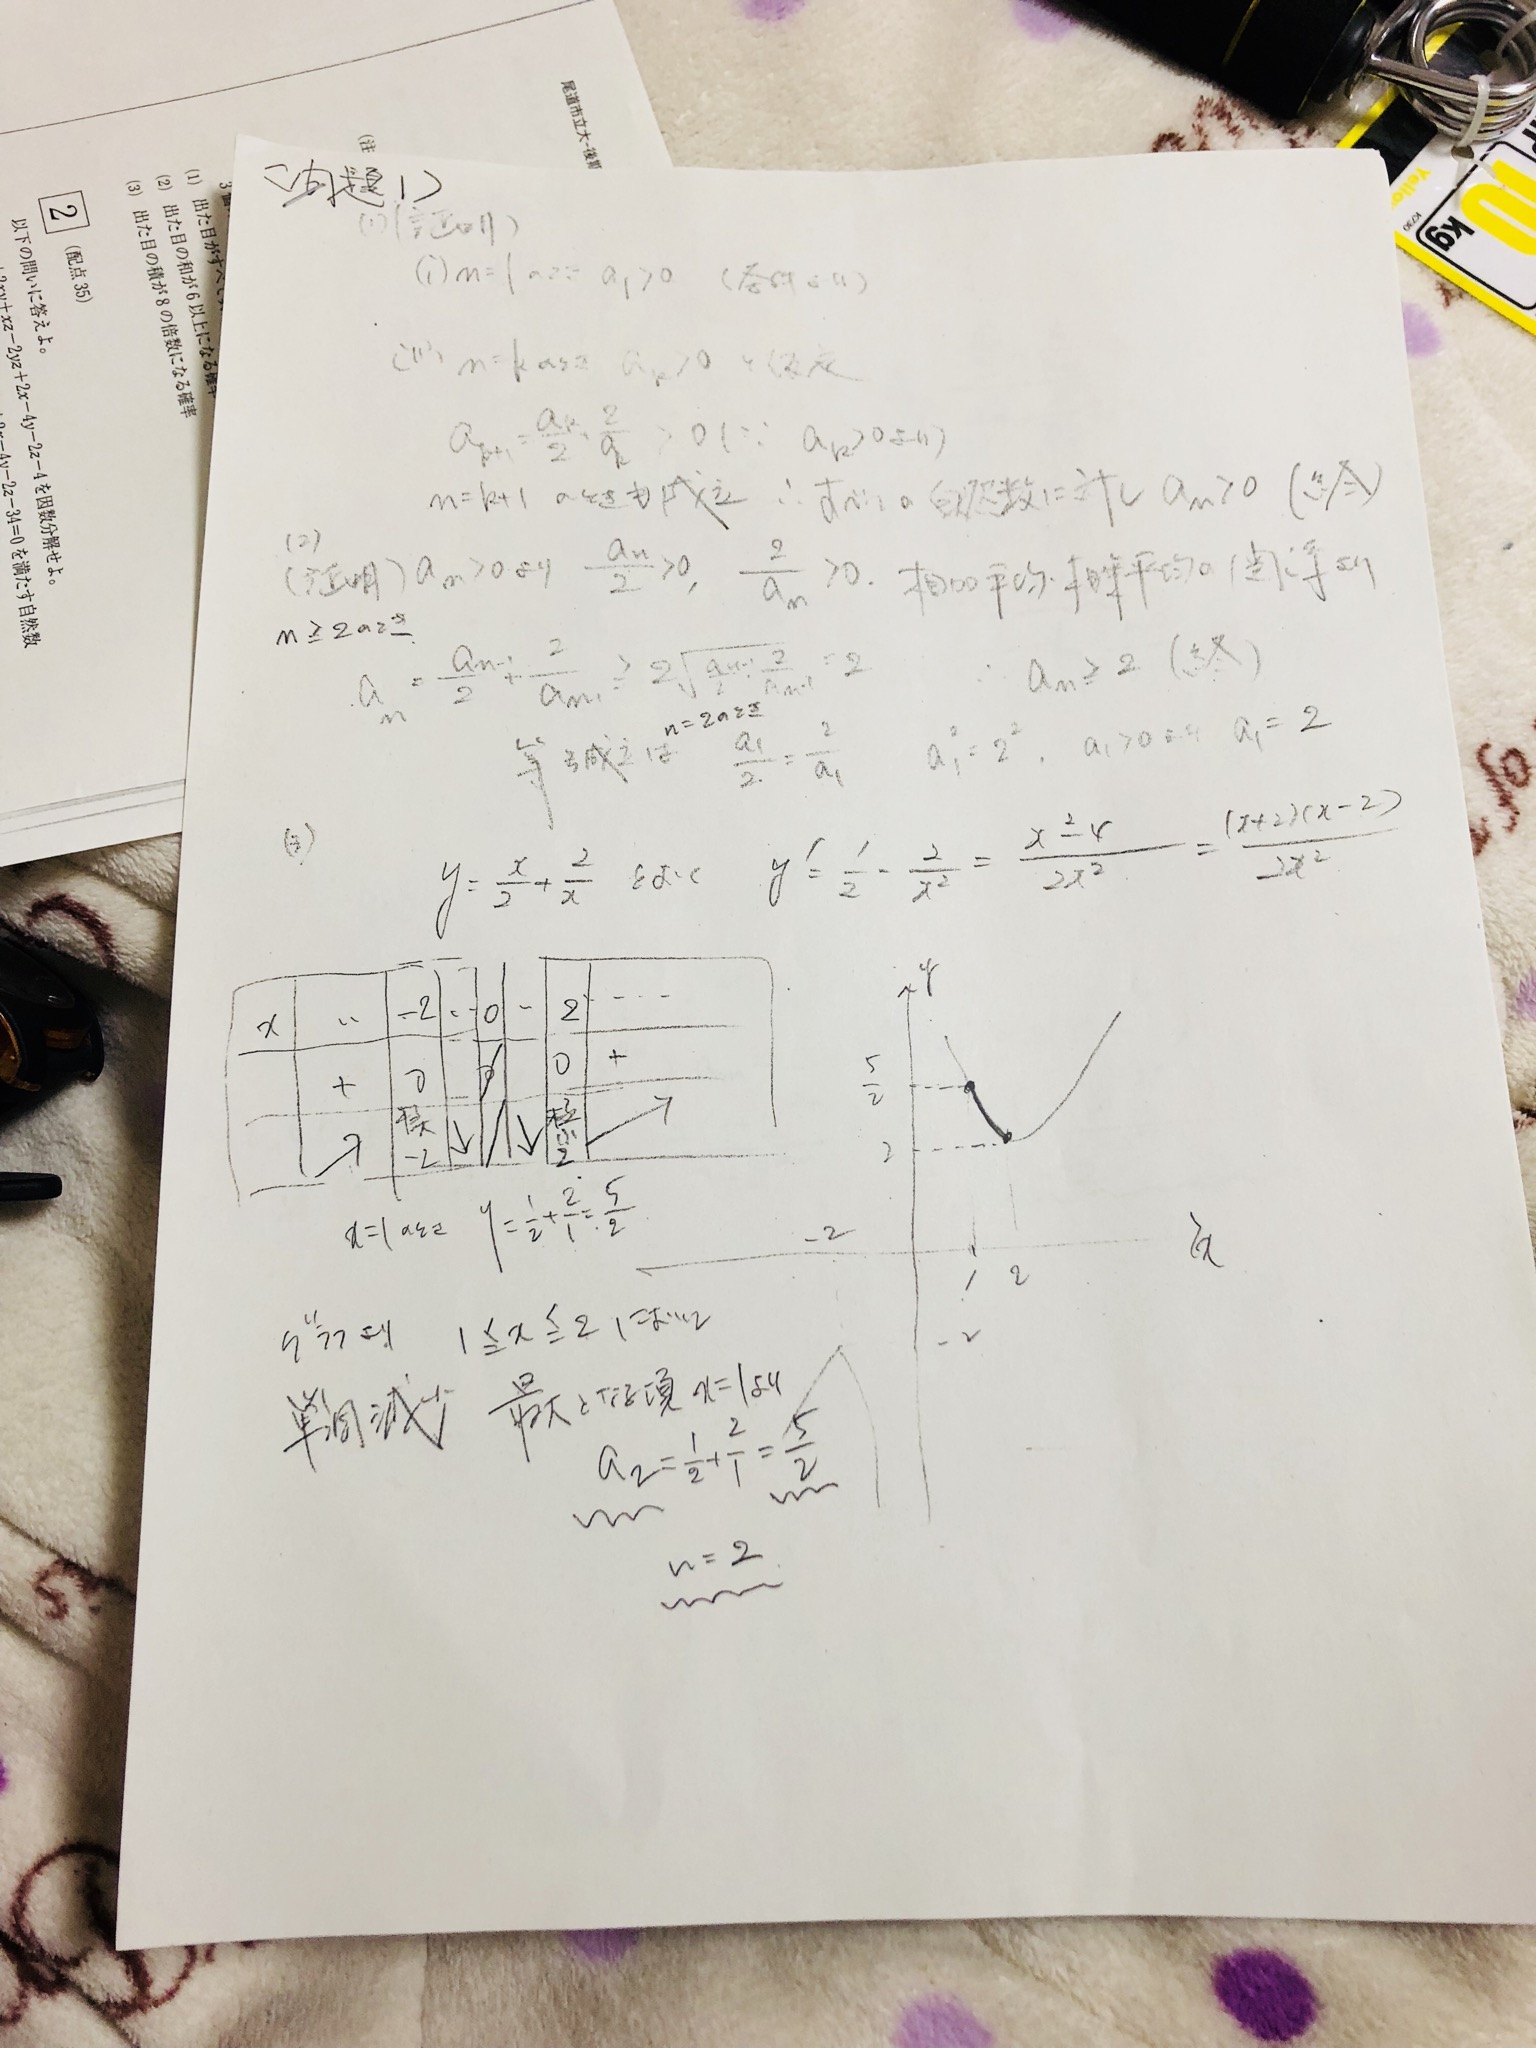 尾道市立大-後期
(注
(1) 出た目がすべて
(2) 出た目の和が6以上になる確率
(3) 出た目の積が8の倍数になる確率
2 (配点 35)
以下の問いに答えよ。
+2xy+xz-2yz+2x-4y-2z-4を因数分解せよ。
-4y-2z-34=0を満たす自然数
10
kg
Yello
K730
<問題1>
(1)(証明)
(i) n=1のとき a₁>0 (条件より)
(ii) n=kのとき aₖ>0 と仮定
aₖ₊₁=aₖ/2+2/aₖ>0 (∵ aₖ>0より)
n=k+1 のときも成立 ∴すべての自然数に対し aₙ>0 (終)
(2)
(証明) aₙ>0より aₙ/2>0, 2/aₙ>0. 相加平均・相乗平均の関係より
n≧2のとき
aₙ=aₙ₋₁/2+2/aₙ₋₁≧2√(aₙ₋₁/2・2/aₙ₋₁)=2 ∴ aₙ≧2 (終)
n=2のとき
等号成立は a₁/2=2/a₁ a₁²=2², a₁>0より a₁=2
(3)
y=x/2+2/x とおく y'=1/2-2/x²=(x²-4)/2x²=(x+2)(x-2)/2x²
x ‥ -2 ‥ 0 ‥ 2 ‥‥
+ 0 0 +
↗ 極大 -2 ↓ ↓ 極小 2 ↗
x=1のとき y=1/2+2/1=5/2
y
5/2
2
-2 1 2 x
-2
グラフより 1≦x≦2において
単調減少 最大となる項 x=1より
a₂=1/2+2/1=5/2
n=2